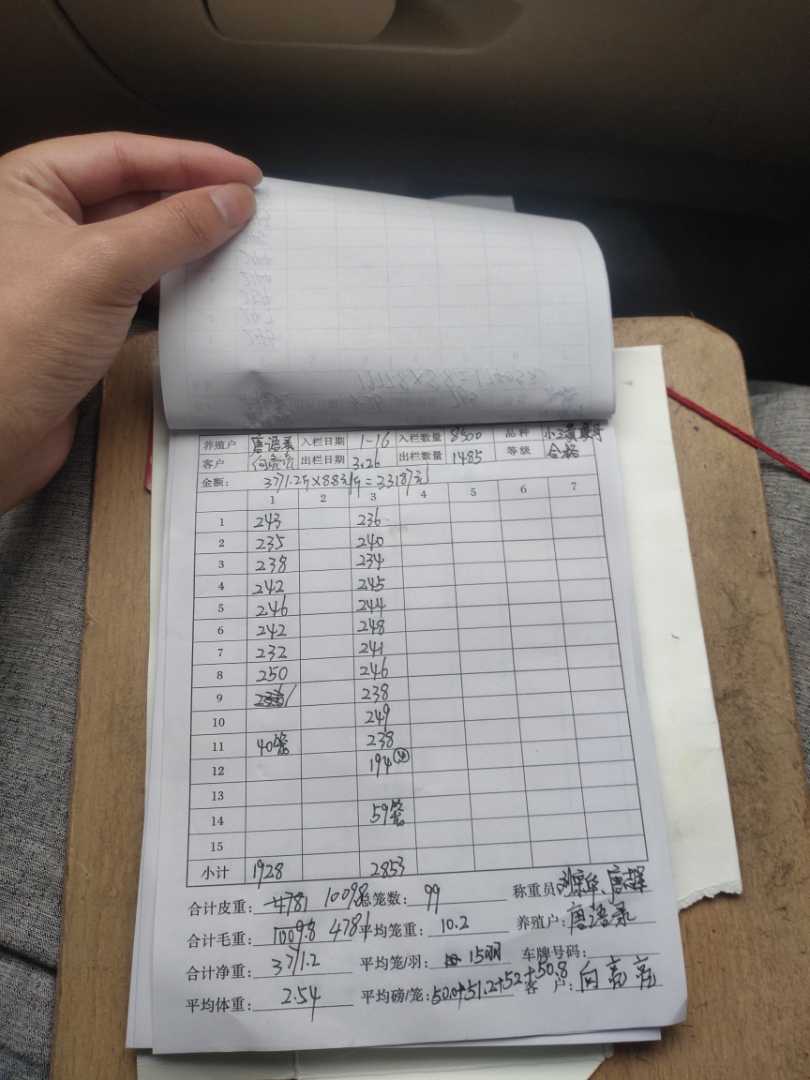 养殖户 唐语录 入栏日期 1-16 入栏数量 8500 品种
客户 向亮亮 出栏日期 3.26 出栏数量 1485 等级 合格
金额: 3771.2斤×8.8元/斤=33187元
1 2 3 4 5 6 7
1 243 236
2 235 240
3 238 234
4 242 245
5 246 244
6 242 248
7 232 241
8 250 246
9 238
10 249
11 40笼 238
12 194 ④
13
14 59笼
15
小计 1928 2853
合计皮重: 4781 1009.8 总笼数: 99 称重员
合计毛重: 1009.8 4781 平均笼重: 10.2 养殖户: 唐语录
合计净重: 3771.2 平均笼/羽: 15羽 车牌号码:
平均体重: 2.54 平均磅/笼: 50.8+51.2+52+50.8 客户: 向亮亮